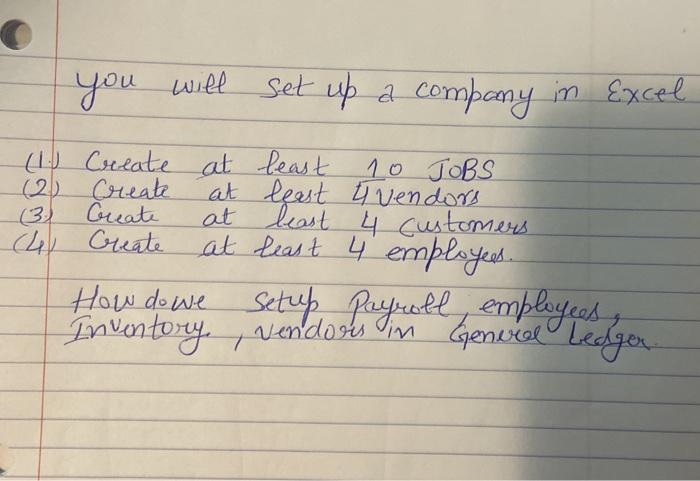 you will set up a company in Excel
(1) Create at least 10 JOBS
(2) Create at least 4 vendors
(3) Create at least 4 customers
(4) Create at least 4 employees.
How do we setup Payroll, employees,
Inventory, vendors in General Ledger.